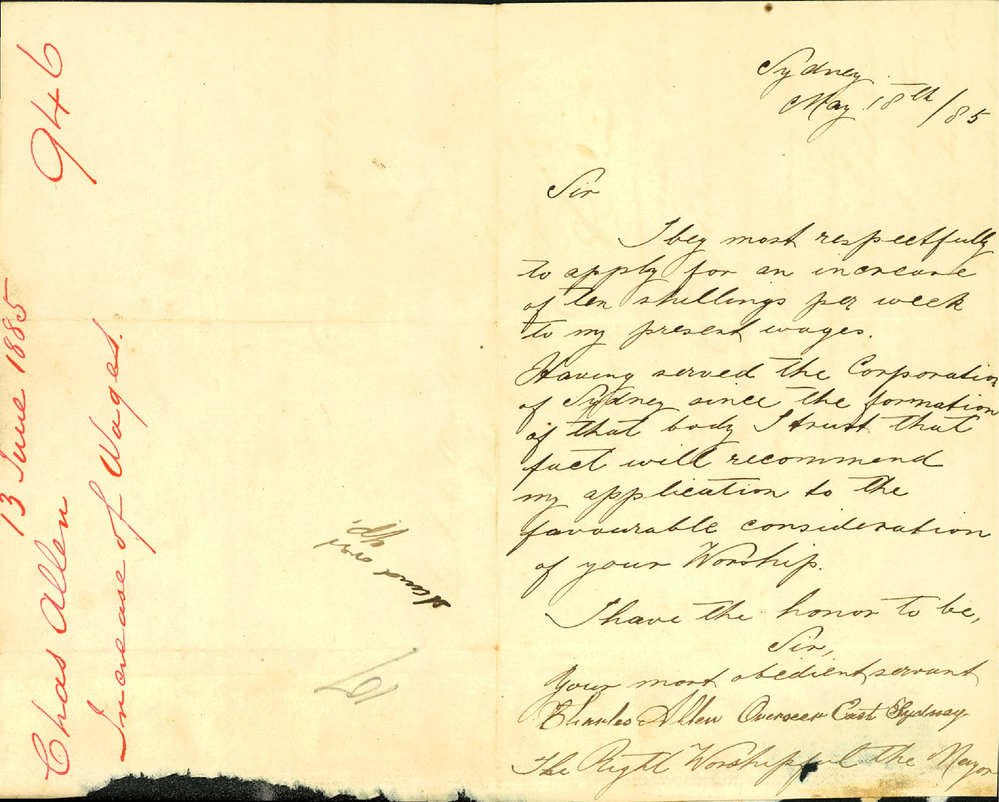 946
13 June 1885
Chas Allen
Increase of Wages.
Stand over
197
Sydney
May 18th/85
Sir
I beg most respectfully
to apply for an increase
of ten shillings per week
to my present wages.
Having served the Corporation
of Sydney since the formation
of that body I trust that
fact will recommend
my application to the
favourable consideration
of your Worship.
I have the honor to be,
Sir,
Your most obedient servant
Charles Allen Overseer East Sydney
The Right Worshipful the Mayor